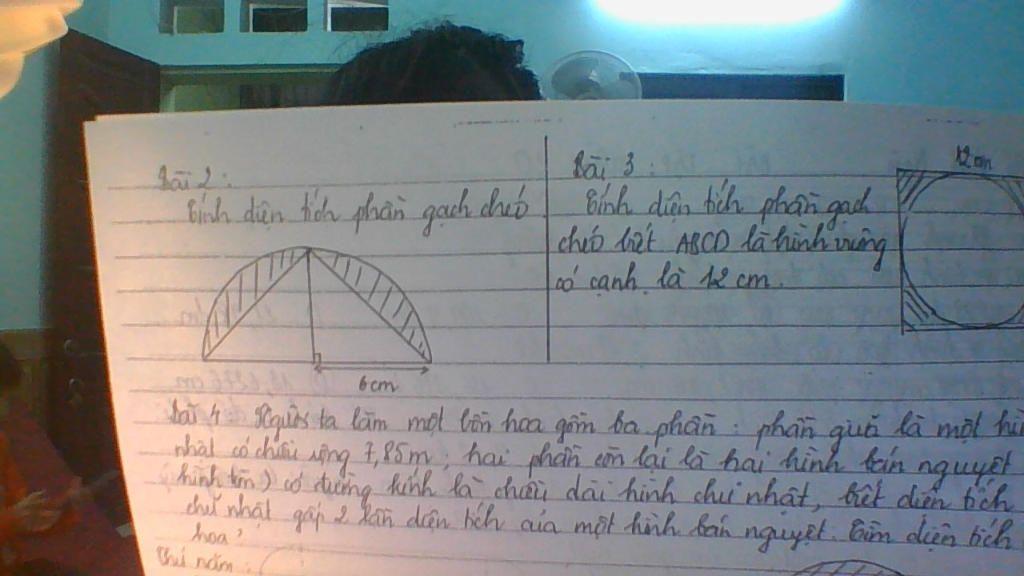 Bài 2:
Tính diện tích phần gạch chéo
6cm
Bài 3:
Tính diện tích phần gạch
chéo biết ABCD là hình vuông
có cạnh là 12 cm.
12cm
Bài 4 Người ta làm một bồn hoa gồm ba phần: phần giữa là một
nhật có chiều rộng 7,85m; hai phần còn lại là hai hình bán nguyệt
hình tròn) có đường kính là chiều dài hình chữ nhật, biết diện tích
chữ nhật gấp 2 lần diện tích của một hình bán nguyệt. Tìm diện tích
hoa?
Thứ năm: